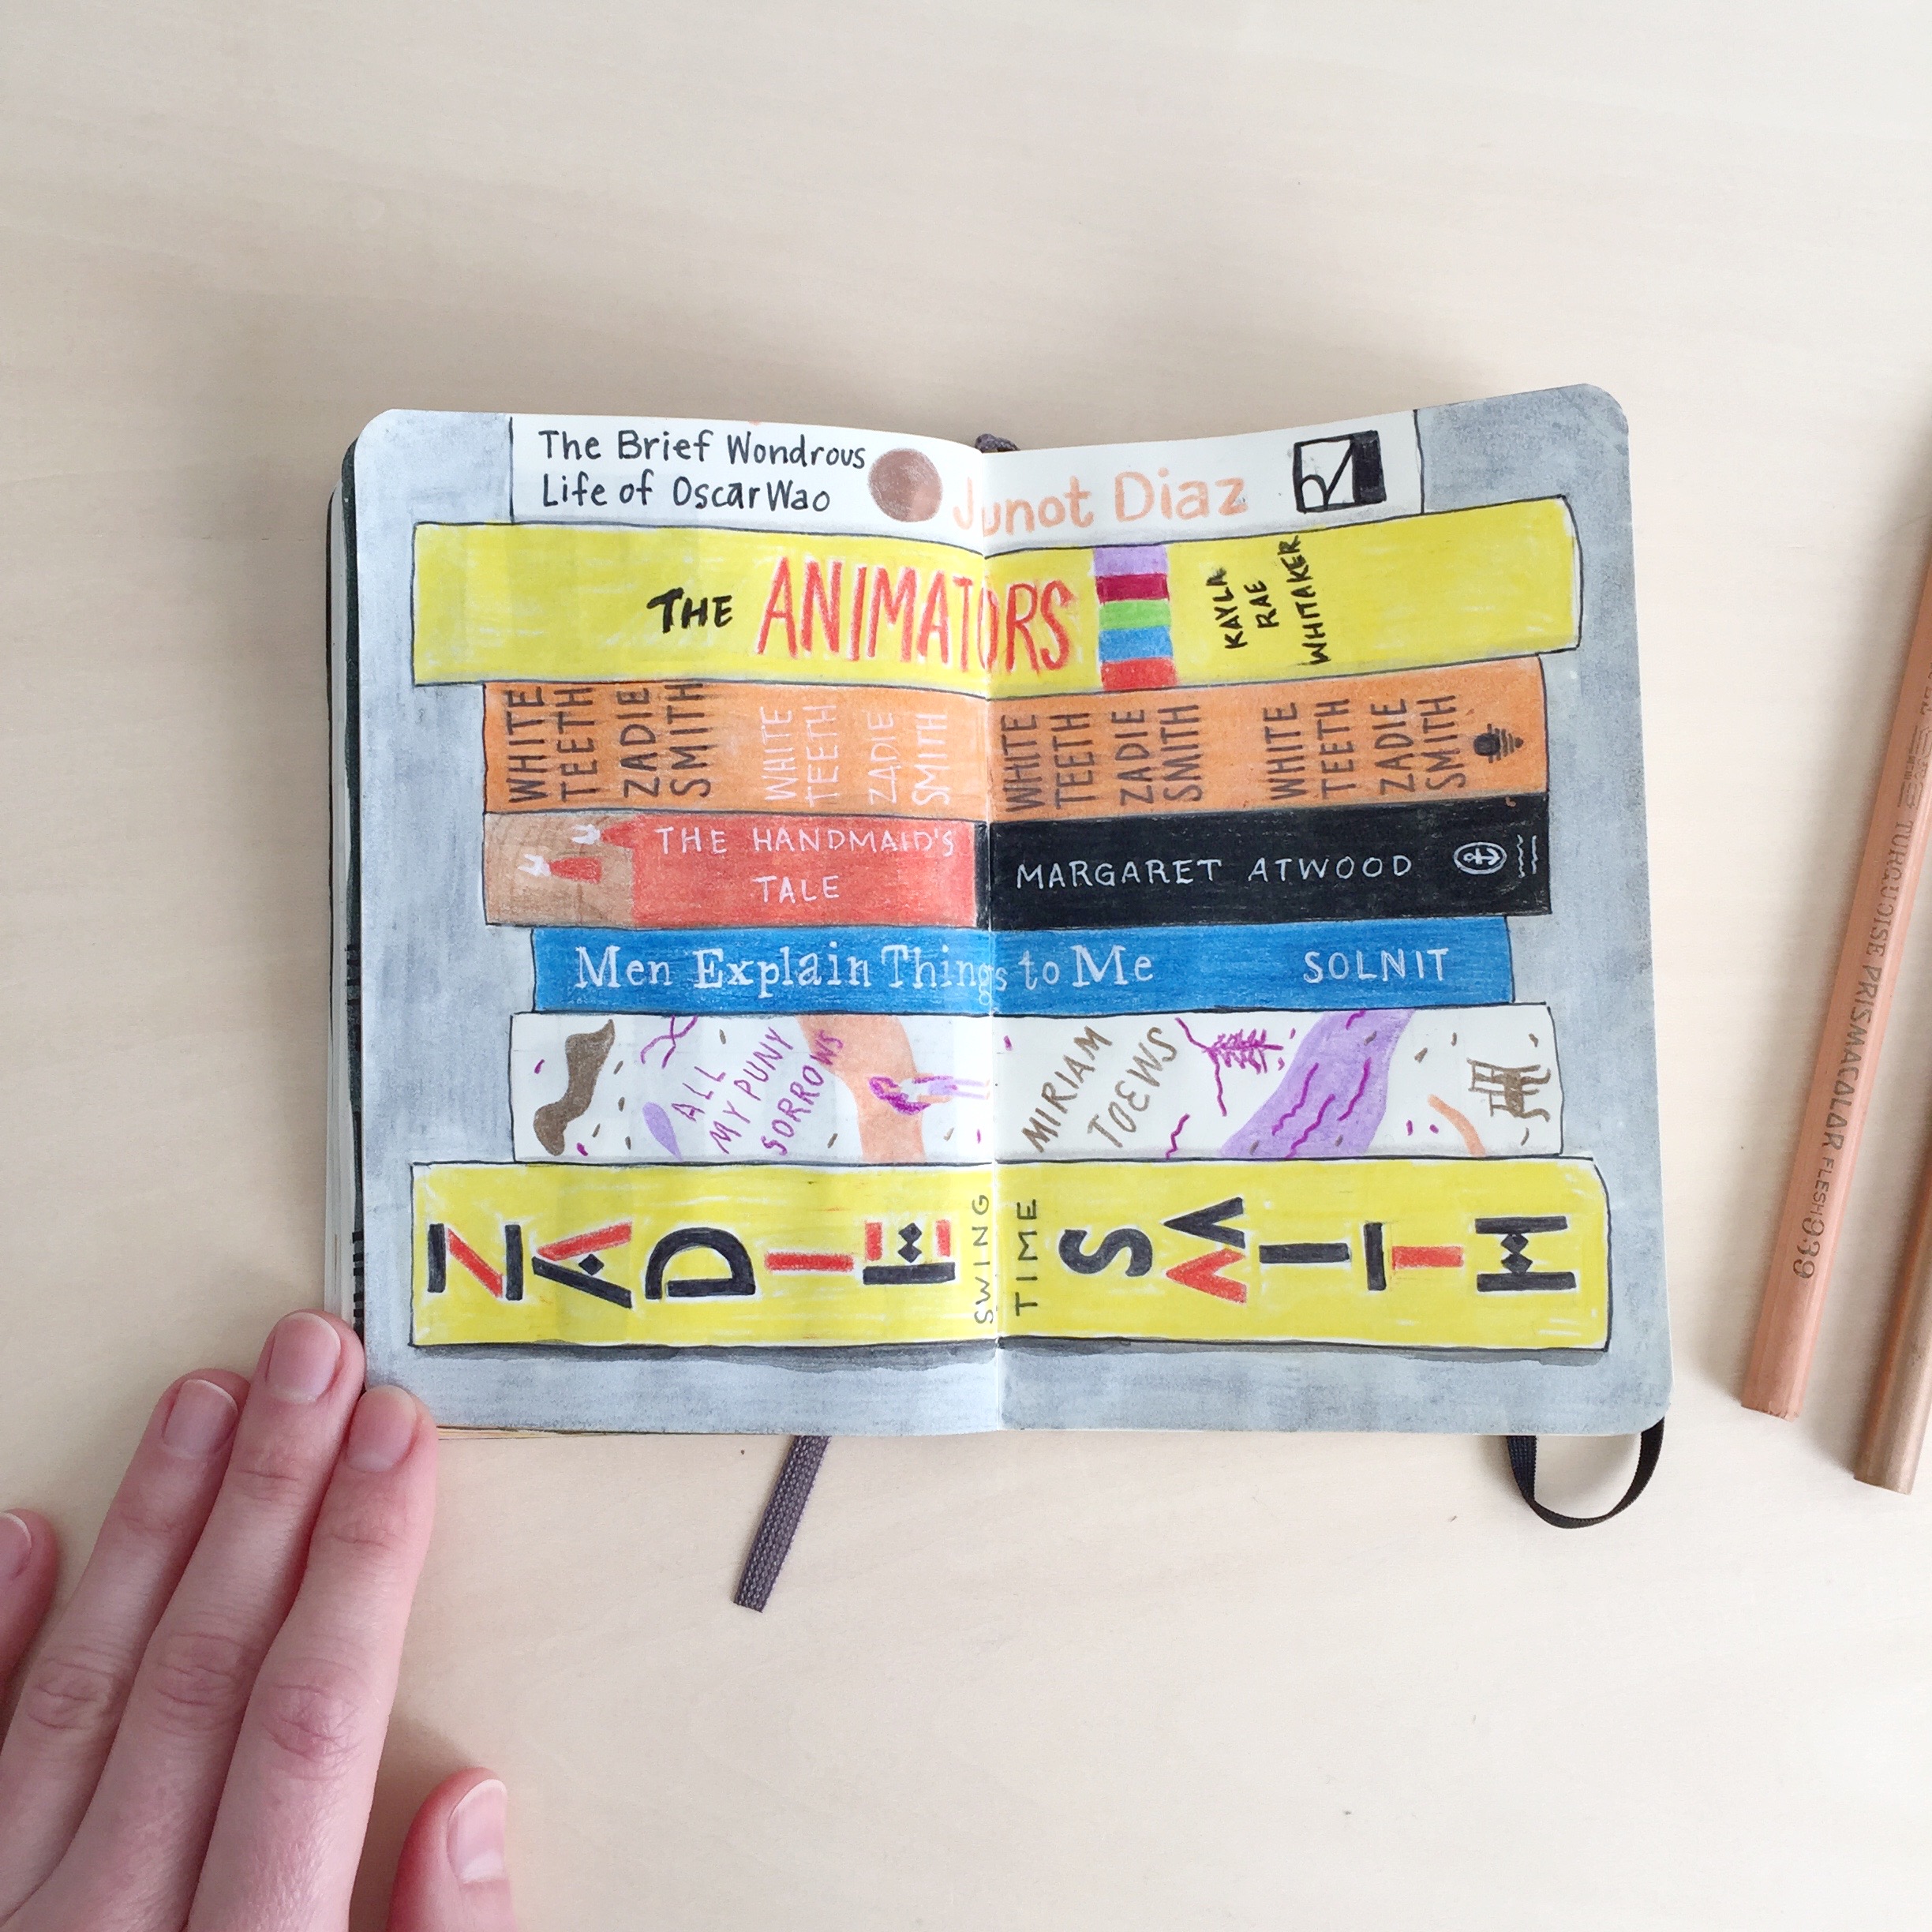 The Brief Wondrous
Life of Oscar Wao
Junot Diaz
R
THE ANIMATORS
KAYLA
RAE
WHITAKER
WHITE
TEETH
ZADIE
SMITH
WHITE
TEETH
ZADIE
SMITH
WHITE
TEETH
ZADIE
SMITH
WHITE
TEETH
ZADIE
SMITH
THE HANDMAID'S
TALE
MARGARET ATWOOD
Men Explain Things to Me
SOLNIT
ALL
MY PUNY
SORROWS
MIRIAM
TOEWS
ZADIE
SWING
TIME
SMITH
TURQUOISE PRISMACALAR FLESH 939